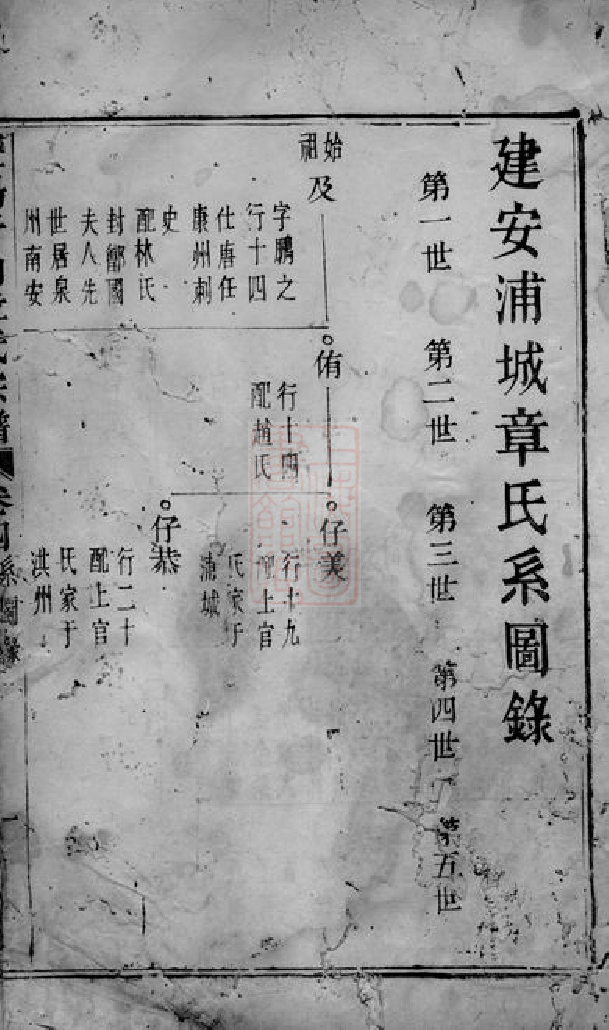 建安浦城章氏系圖錄
第一世 第二世 第三世 第四世 第五世
始
祖
及
字鵬之
行十四
仕唐任
康州刺
史
配林氏
封鄮國
夫人先
世居泉
州南安
侑
行十四
配趙氏
仔美
行十九
配上官
氏家于
浦城
仔恭
行二十
配上官
氏家于
洪州
章氏宗譜 卷四 系圖錄 一